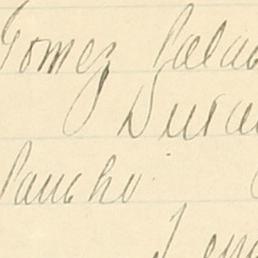 Gomez Palac
Duran
Pancho